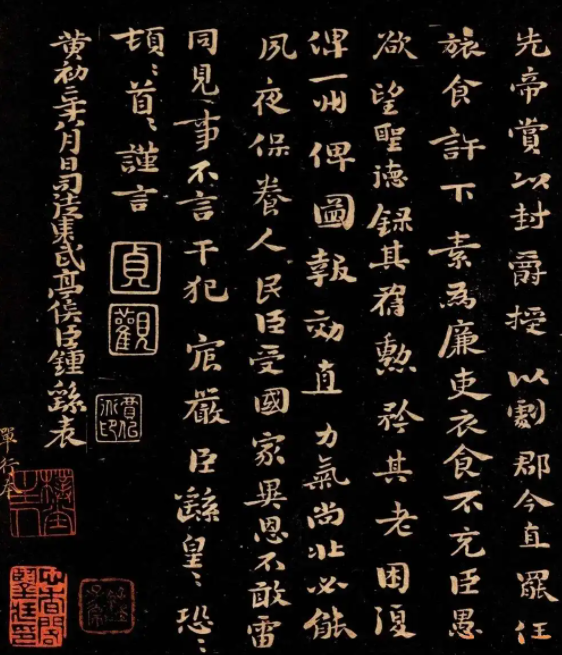 先帝賞以封爵授以劇郡今直罷任
旅食許下素為廉吏衣食不充臣愚
欲望聖德録其舊勲矜其老困復
俾一州俾圖報効直力氣尚壯必能
夙夜保養人民臣受國家異恩不敢雷
同見事不言干犯宸嚴臣繇皇〻恐〻
頓〻首〻謹言
貞觀
黄初二年八月日司徒東武亭侯臣鍾繇表